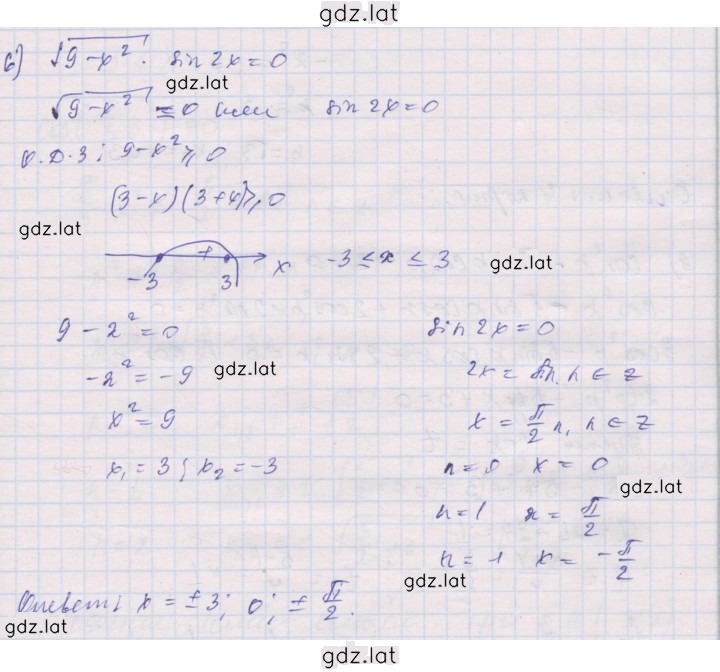 gdz.lat
б) √9-x² · sin 2x = 0
gdz.lat
√9-x² = 0 или sin 2x = 0
О.Д.З: 9-x² ⩾ 0
(3-x)(3+x) ⩾ 0
gdz.lat
+ x -3 ≤ x ≤ 3 gdz.lat
-3 3
9 - x² = 0 sin 2x = 0
-x² = -9 gdz.lat 2x = πn, n ∈ Z
x² = 9 x = π/2 n, n ∈ Z
x₁ = 3; x₂ = -3 n = 0 x = 0
gdz.lat
n = 1 x = π/2
n = -1 x = -π/2
gdz.lat
Ответ: x = ± 3; 0; ± π/2.
gdz.lat
gdz.lat